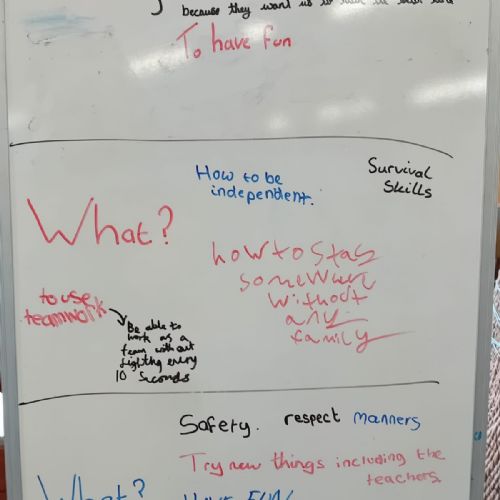 because they want us to
To have fun
How to be
independent.
Survival
Skills
What?
how to stay
somewere
without
any
family
to use
teamwork
Be able to
work as a
team without
fighting every
10 Seconds
Safety. respect manners
Try new things including the
teachers.
What?
HAVE FUN